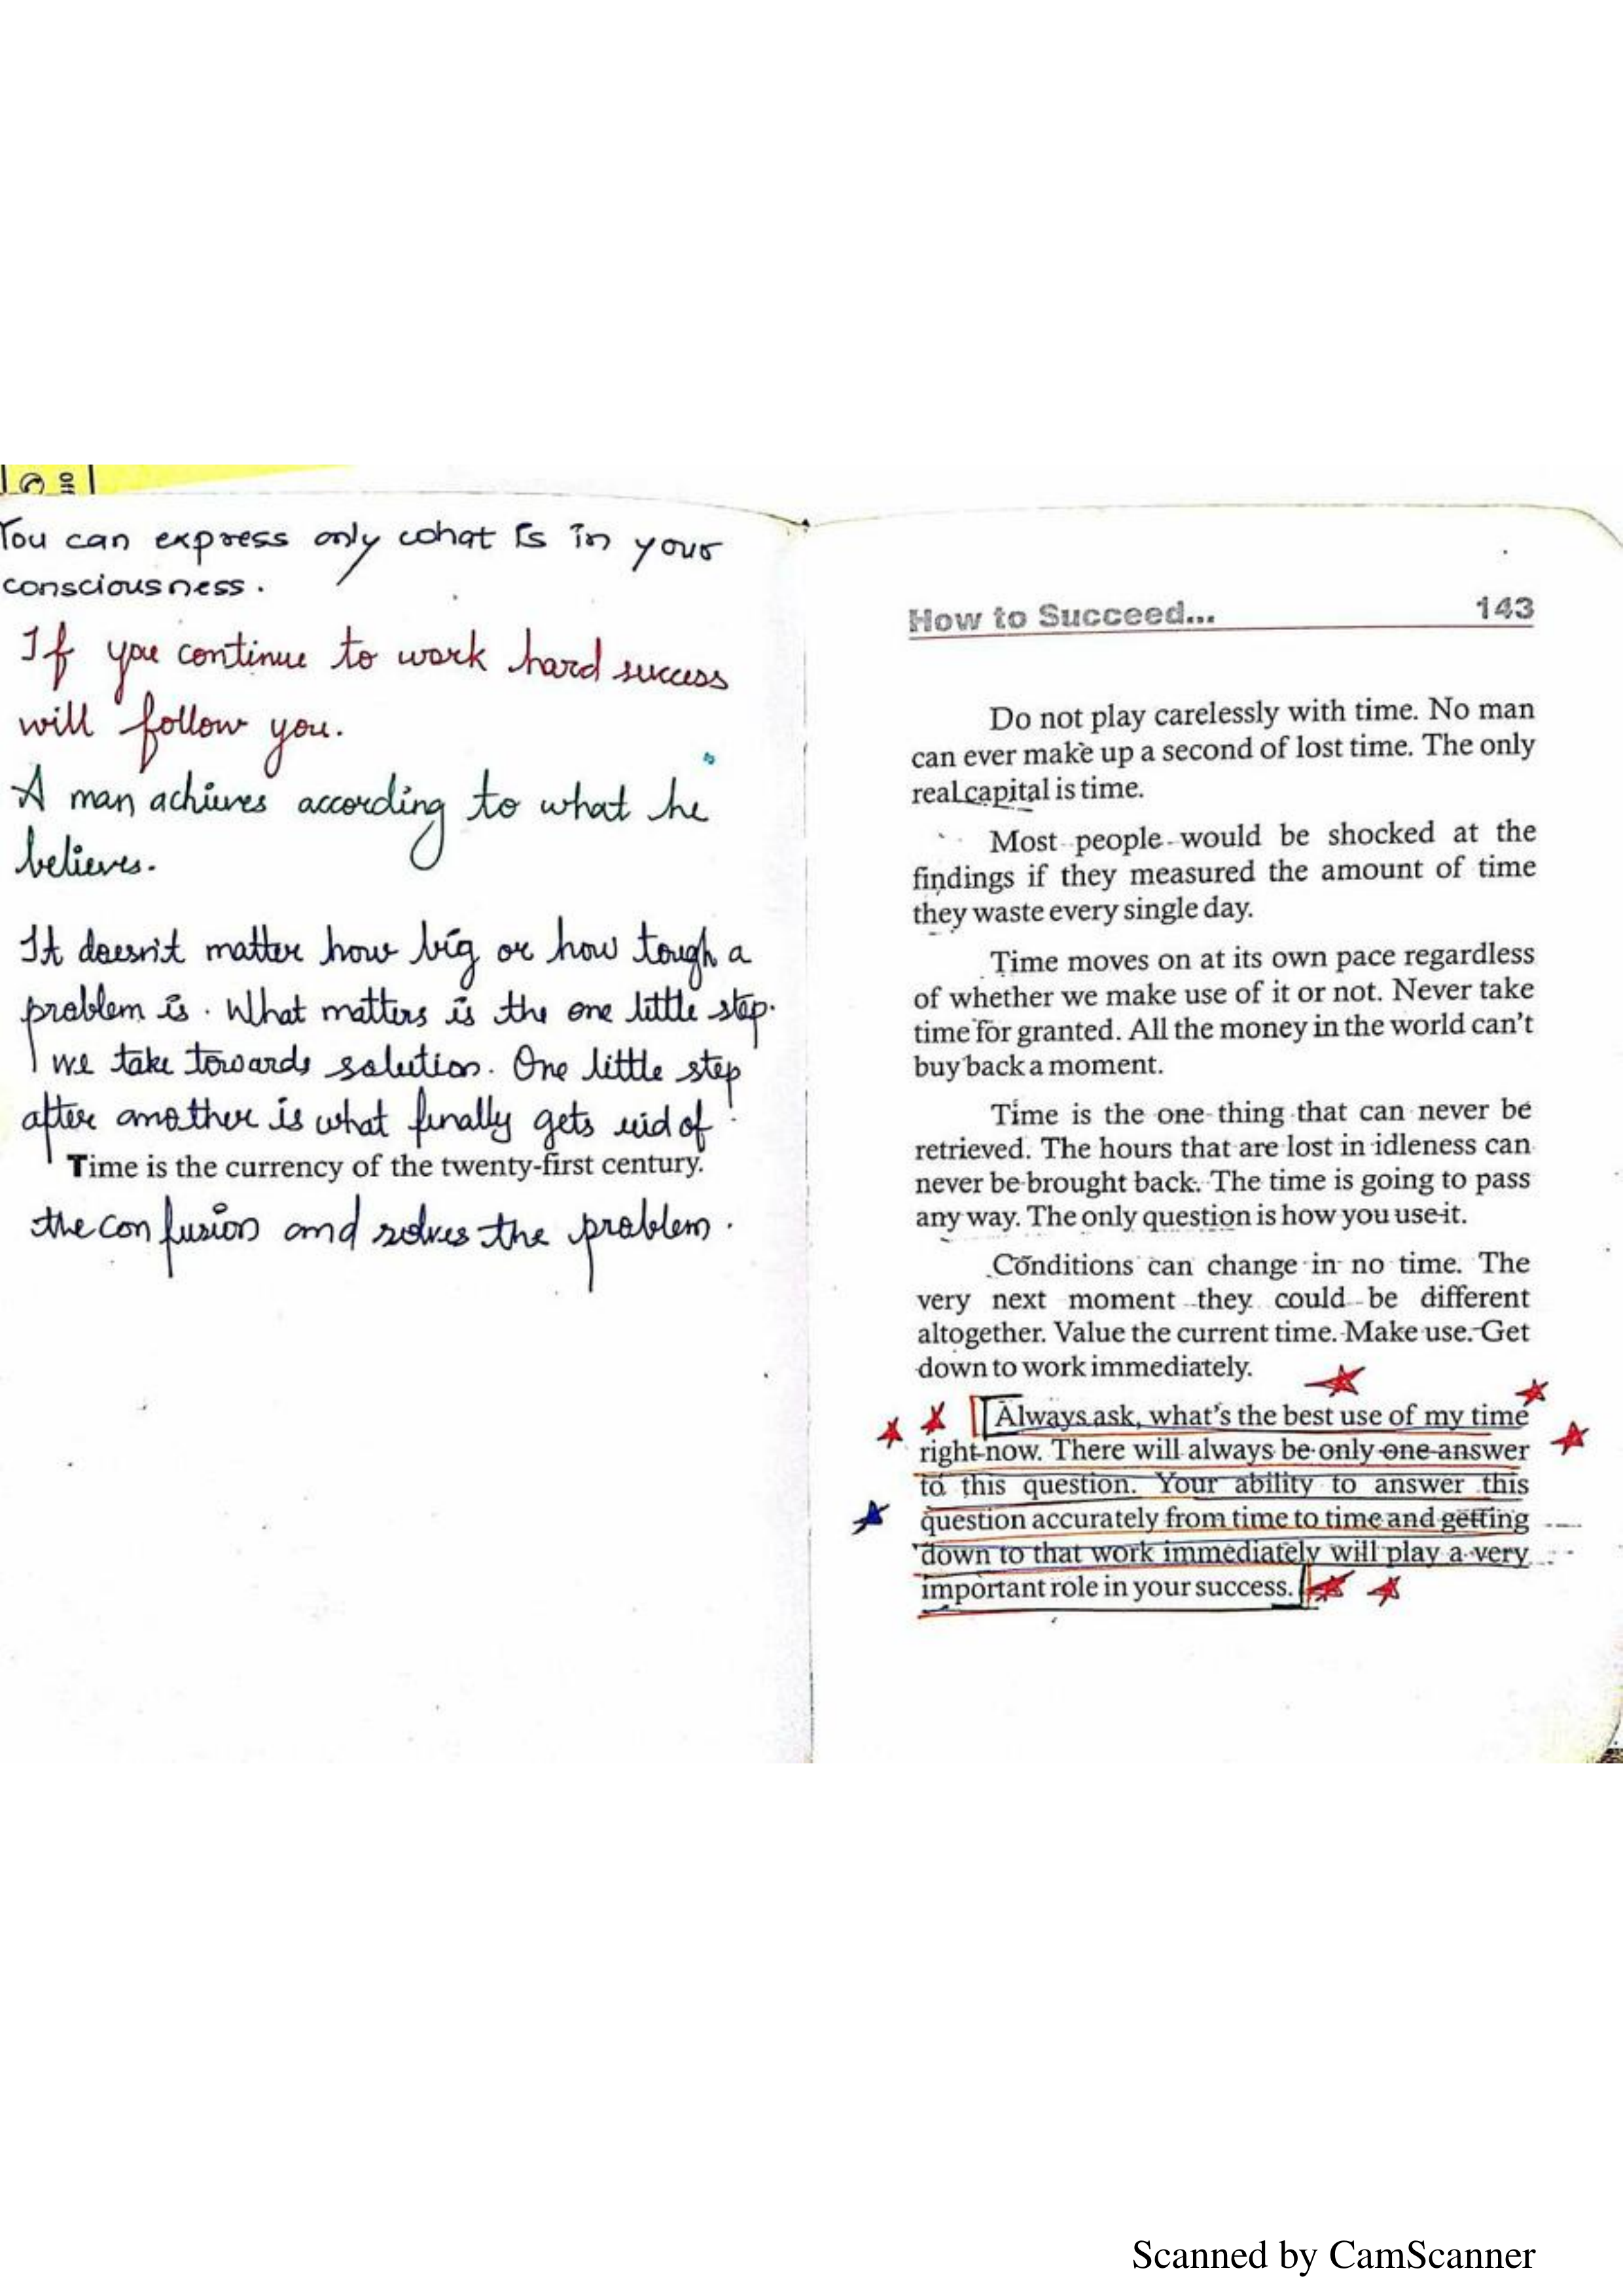 You can express only what is in your
consciousness.
If you continue to work hard success
will follow you.
A man achieves according to what he
believes.
It doesn't matter how big or how tough a
problem is. What matters is the one little step.
we take towards solution. One little step
after another is what finally gets rid of
Time is the currency of the twenty-first century.
the confusion and solves the problem.
How to Succeed... 143
Do not play carelessly with time. No man
can ever make up a second of lost time. The only
real capital is time.
Most people would be shocked at the
findings if they measured the amount of time
they waste every single day.
Time moves on at its own pace regardless
of whether we make use of it or not. Never take
time for granted. All the money in the world can't
buy back a moment.
Time is the one thing that can never be
retrieved. The hours that are lost in idleness can
never be brought back. The time is going to pass
any way. The only question is how you use it.
Conditions can change in no time. The
very next moment they could be different
altogether. Value the current time. Make use. Get
down to work immediately.
Always ask, what's the best use of my time
right now. There will always be only one answer
to this question. Your ability to answer this
question accurately from time to time and getting
down to that work immediately will play a very
important role in your success.
Scanned by CamScanner